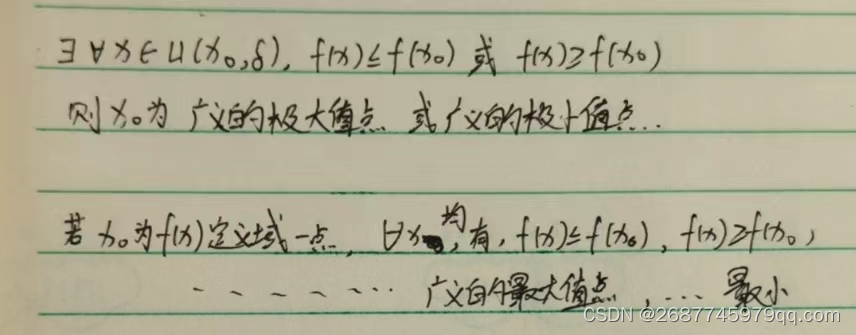 ∃ ∀x∈U(x₀,δ), f(x)≤f(x₀) 或 f(x)≥f(x₀)
则 x₀为 广义的极大值点 或广义的极小值点...
若 x₀为f(x)定义域一点, ∀x均有, f(x)≤f(x₀), f(x)≥f(x₀,
- - - - ... 广义的最大值点, ... 最小
CSDN @2687745979qq.com